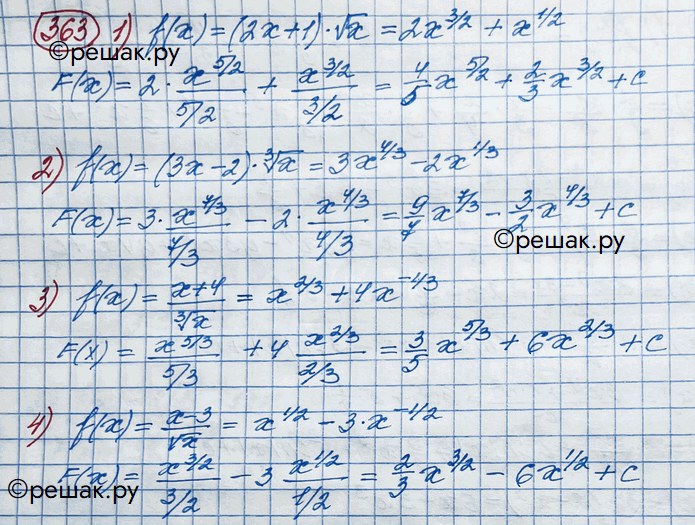 363 1) f(x) = (2x+1)·√x = 2x^3/2 + x^1/2
©решак.ру
F(x) = 2· x^5/2 / 5/2 + x^3/2 / 3/2 = 4/5 x^5/2 + 2/3 x^3/2 + C
2) f(x) = (3x-2)·∛x = 3x^4/3 - 2x^1/3
F(x) = 3· x^7/3 / 7/3 - 2· x^4/3 / 4/3 = 9/7 x^7/3 - 3/2 x^4/3 + C
©решак.ру
3) f(x) = x+4 / ∛x = x^2/3 + 4x^-1/3
F(x) = x^5/3 / 5/3 + 4 x^2/3 / 2/3 = 3/5 x^5/3 + 6x^2/3 + C
4) f(x) = x-3 / √x = x^1/2 - 3·x^-1/2
F(x) = x^3/2 / 3/2 - 3 x^1/2 / 1/2 = 2/3 x^3/2 - 6x^1/2 + C
©решак.ру